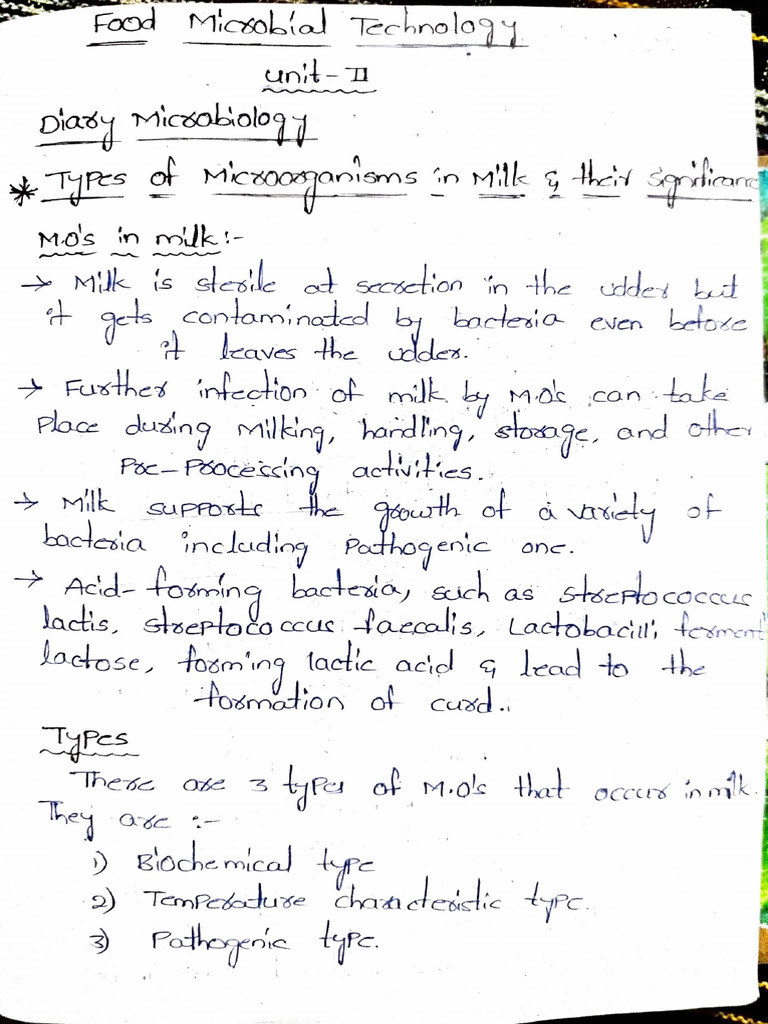 Food Microbial Technology
unit-II
Diary Microbiology
* Types of Microorganisms in Milk & their significanc
M.O's in milk:-
→ Milk is sterile at secretion in the udder but
it gets contaminated by bacteria even before
it leaves the udder.
→ Further infection of milk by M.O's can take
place during Milking, handling, storage, and other
pre-processing activities.
→ Milk supports the growth of a variety of
bacteria including pathogenic one.
→ Acid-forming bacteria, such as streptococcus
lactis, streptococcus faecalis, Lactobacilli ferment
lactose, forming lactic acid & lead to the
formation of curd..
Types
There are 3 types of M.O's that occur in milk.
They are :-
1) Biochemical type
2) Temperature characteristic type.
3) Pathogenic type.